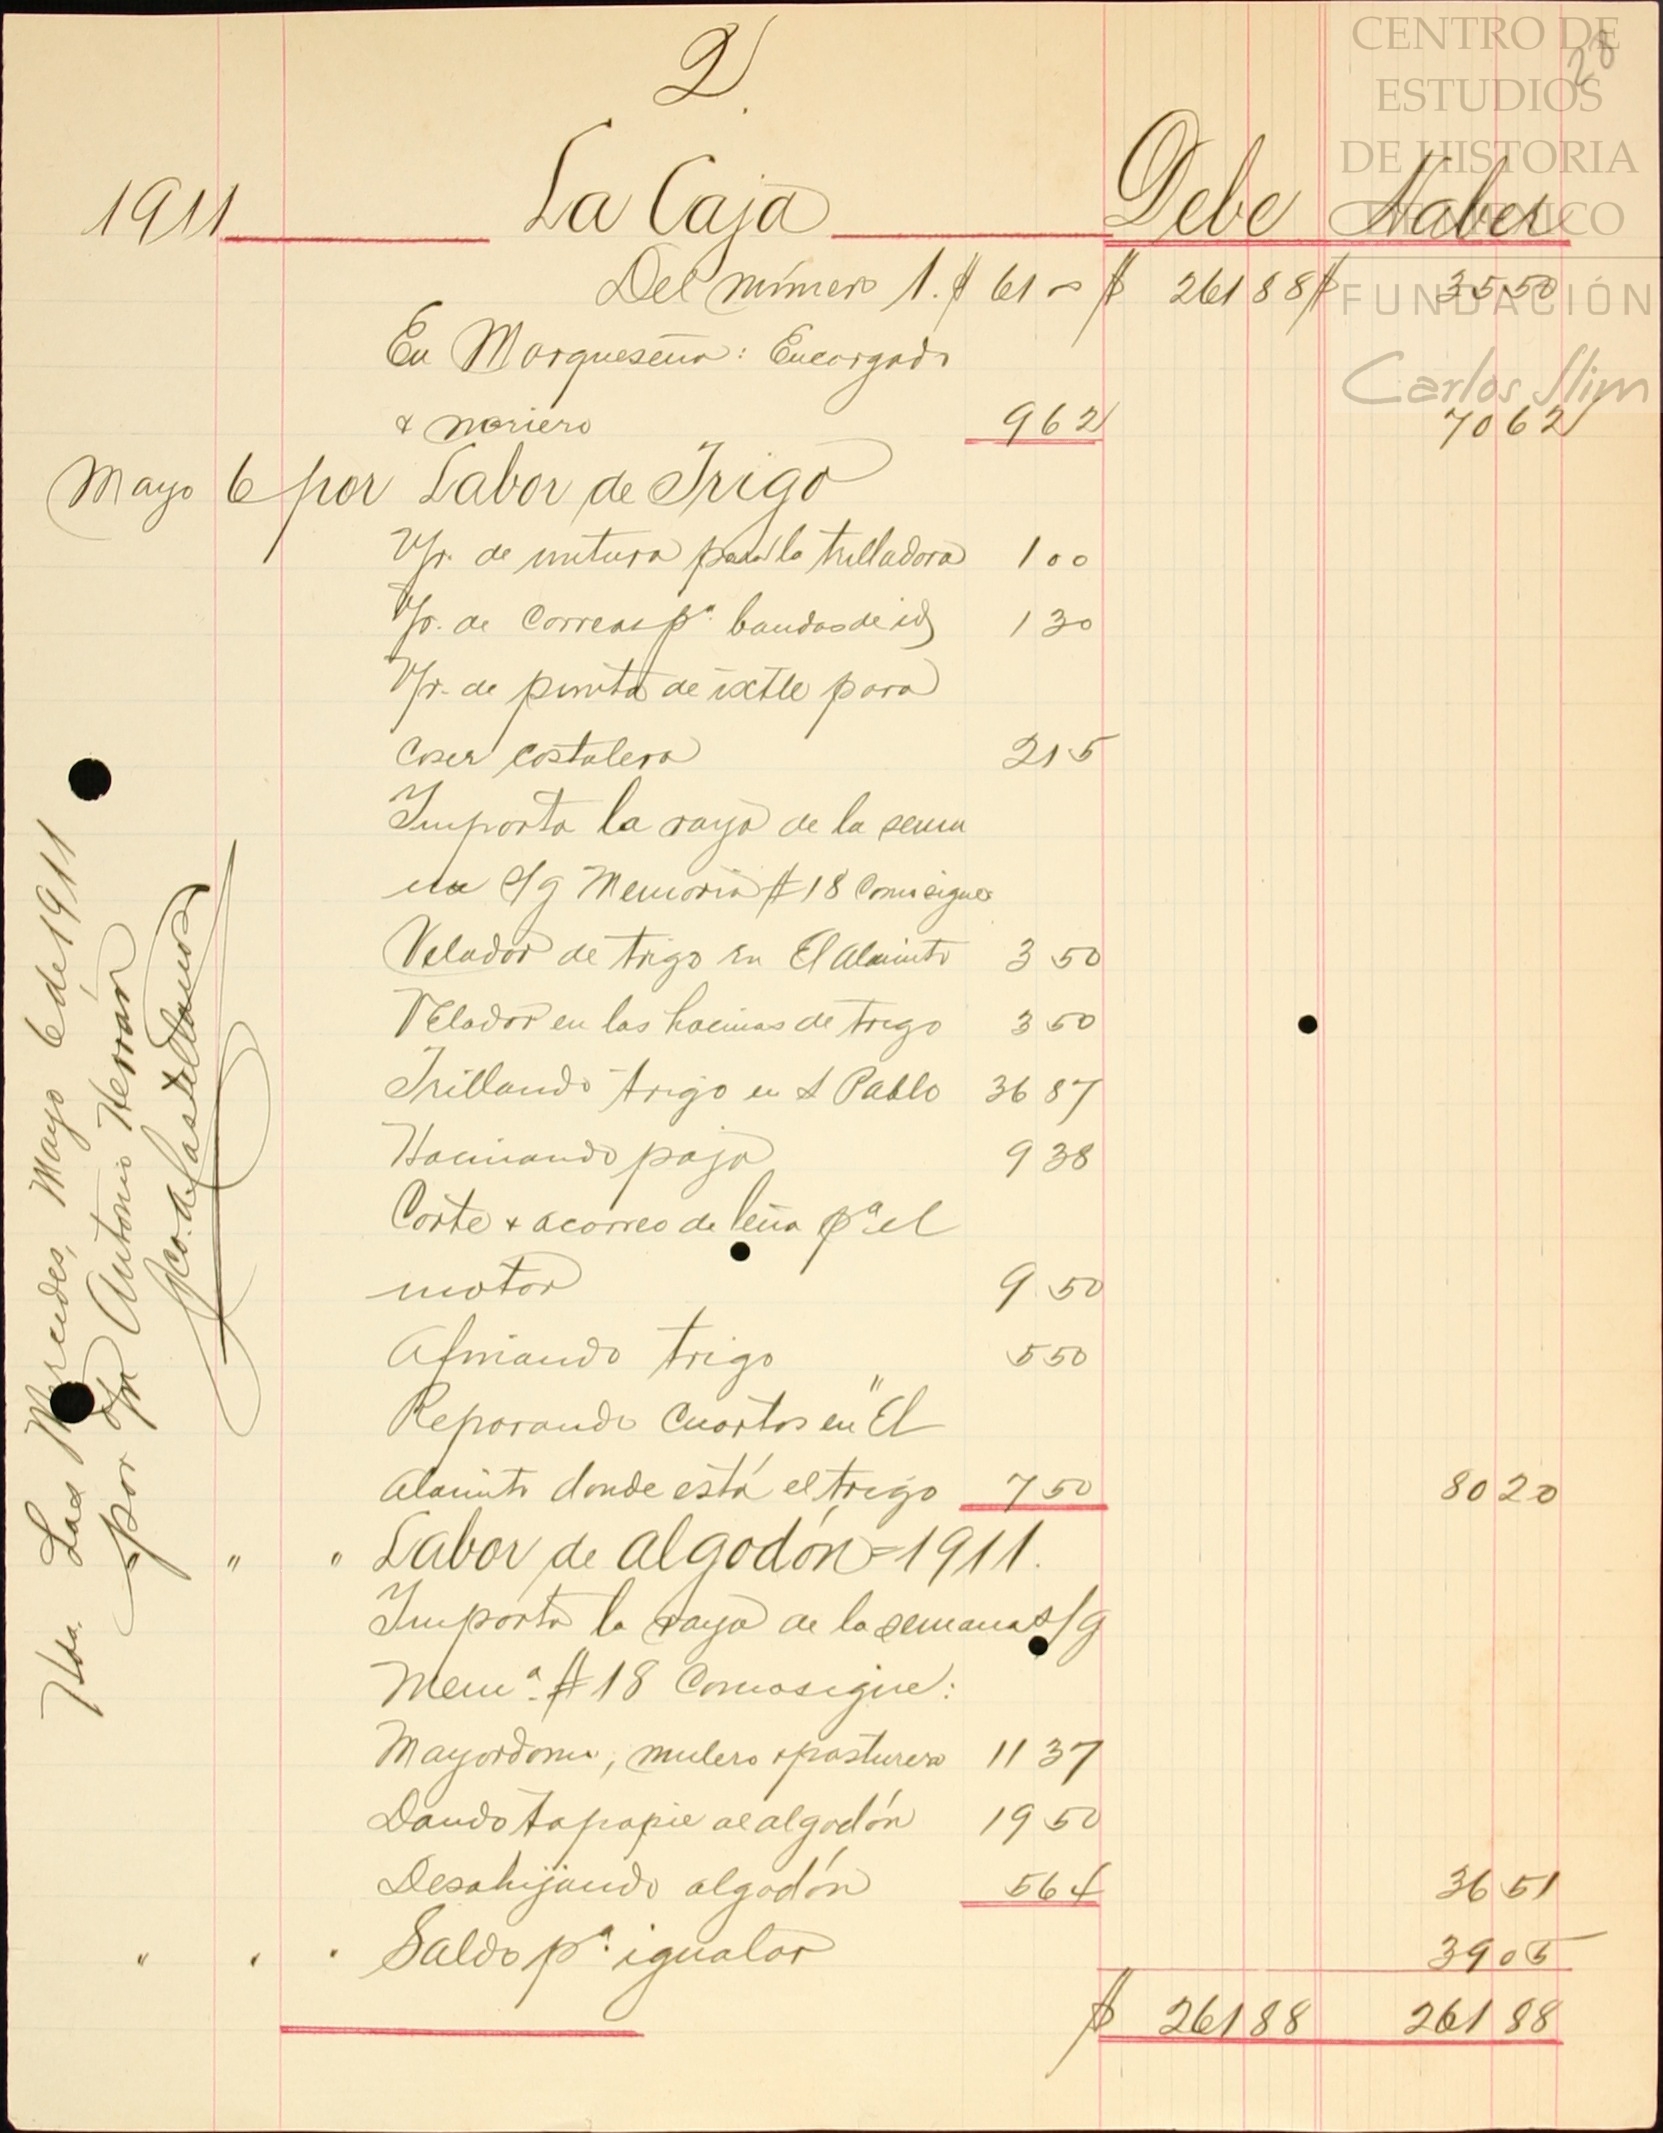 2.
28
1911 La Caja Debe Haber
Del número 1. $ 61 00 $ 261 88 $ 35 50
En Marqueseña: Encargado
& noriero 9 62 70 62
Mayo 6 por Labor de Trigo
Vr. de untura para la trilladora 1 00
Vr. de Correas pª. bandas de id 1 30
Vr. de punta de ixtle para
coser costalera 2 15
Importa la raya de la sema
na s/g Memoria # 18 Como sigue
Velador de trigo en El Alamito 3 50
Velador en las hacinas de trigo 3 50
Trillando trigo en S Pablo 36 87
Hacinando paja 9 38
Corte & acarreo de leña pª el
motor 9 50
Afinando trigo 5 50
Reparando Cuartos en "El
Alamito donde está el trigo 7 50 80 20
" " Labor de algodón = 1911.
Importa la raya de la semana s/g
Memª. # 18 Como sigue:
Mayordomo, mulero & pasturero 11 37
Dando tapapie al algodón 19 50
Desahijando algodón 5 64 36 51
" " " Saldo pª. igualar 39 05
$ 261 88 261 88
Hda. Las Mercedes, Mayo 6 de 1911
por Antonio Herrán
Fco. de Castellanos
CENTRO DE
ESTUDIOS
DE HISTORIA
DE MÉXICO
FUNDACIÓN
Carlos Slim